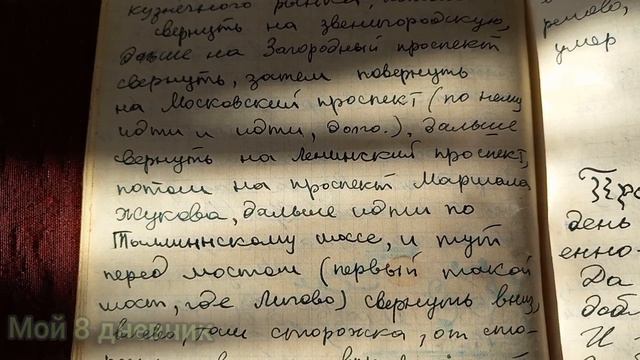 кузнечного рынка,
свернуть на звенигородскую,
дальше на Загородный проспект
свернуть, затем повернуть
на Московский проспект (по нему
идти и идти, долго.), дальше
свернуть на Ленинский проспект,
потом на проспект Маршала
Жукова, дальше идти по
Таллиннскому шоссе, и тут
перед мостом (первый такой
мост, где Лигово) свернуть вниз,
там сторожка, от сто-
умер
день
енно-
Да
И
Мой 8 дневник